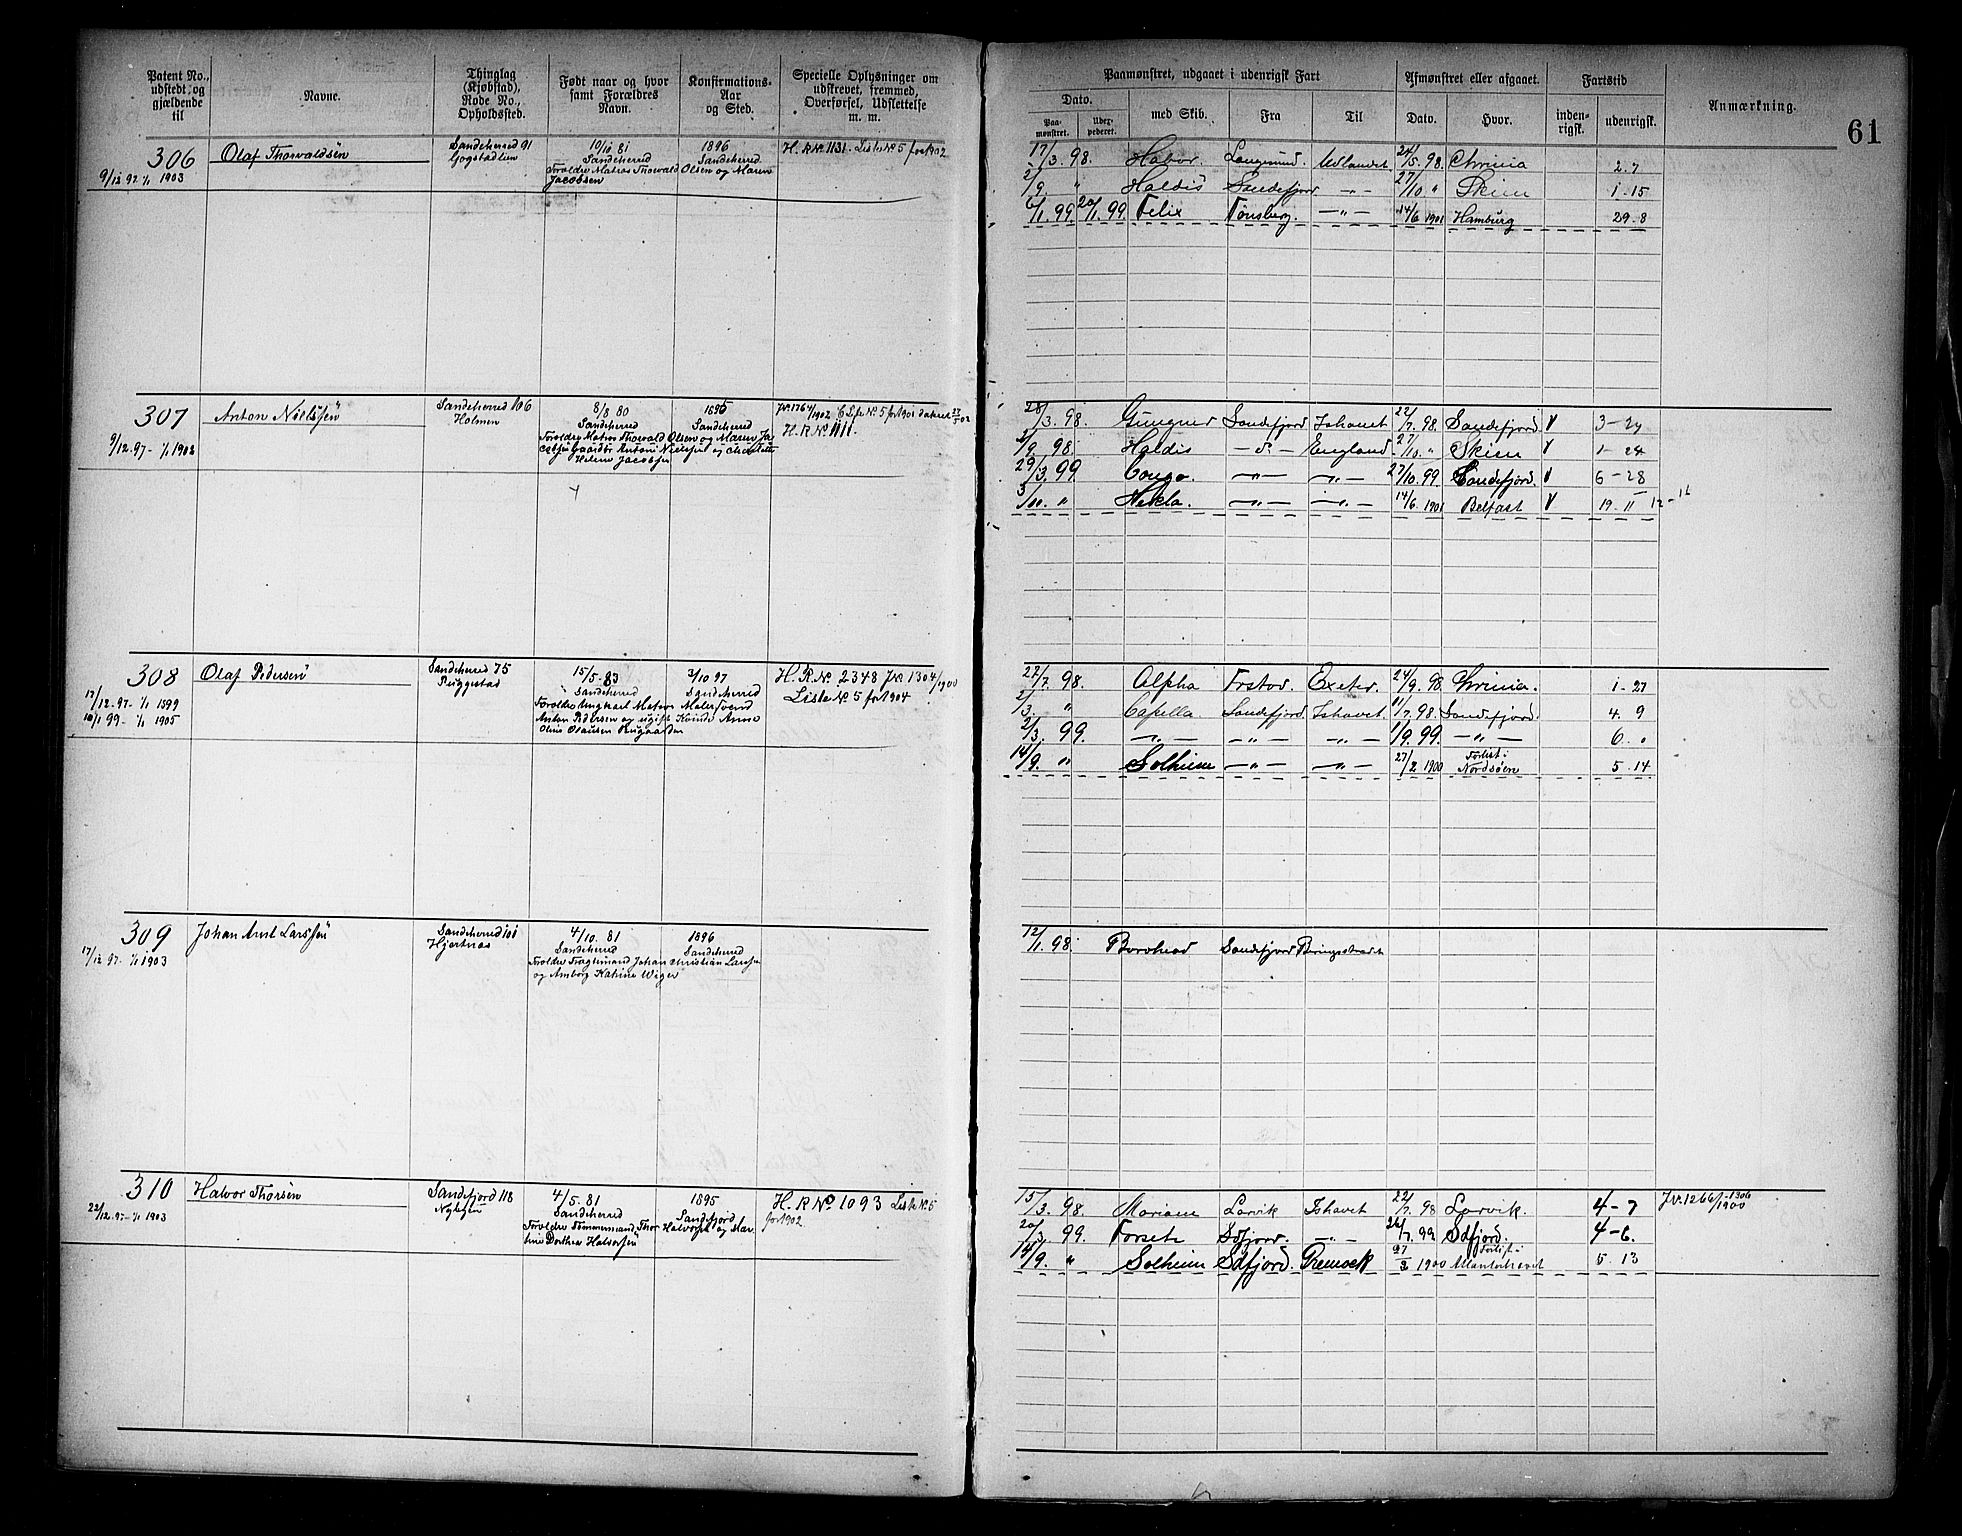 Patent No., udstedt og gjældende til
Navne.
Thinglag (Kjøbstad), Rode No., Opholdssted.
Født naar og hvor samt Forældres Navn.
Konfirmations- Aar og Sted.
Specielle Oplysninger om udskrevet, fremmed, Overførsel, Udslettelse m. m.
Paamønstret, udgaaet i udenrigsk Fart
Afmønstret eller afgaaet.
Fartstid
Anmærkning.
61
Dato.
Paa- mønstret.
Udex- pederet.
med Skib.
Fra
Til
Dato.
Hvor.
inden- rigsk.
udenrigsk.
306
Olaf Thorvaldsen
Sandeherred 91
10/10 81
1896
H. R No. 1131. Liste No 5 for 1902
9/12 97 1/1 1903
Sandeherred
Sandeherred
Forældre Matros Thorvald Olsen og Maren
Jacobsen
17/3. 98. Langesund. Udlandet 24/5. 98. 2. 7
2/9. " Haldis Sandefjord — " — 27/10 " Skien 1 - 15
6/1. 99 20/1. 99. Felix Tønsberg. — " — 14/6 1901 Hamburg 29 - 8
307
Anton Nielsen
Sandeherred 106
Holmen
8/8 80
Sandeherred
1895
Sandeherred
H. R No 1111.
9/12. 97 - 1/1 1903
28/3. 98. Gungner Sandefjord Ishavet 22/7. 98. Sandefjord. 3 - 24
2/9. 98. Haldis — d° — England 27/10. " Skien 1 - 24
29/3. 99. Congo. — " — — " — 27/10. 99 Sandefjord. 6 - 28
3/11. " Hekla. — " — — " — 14/6. 1901 Belfast 19 - 11 12 - 16
308
Olaf Pedersen
Sandeherred 75
15/5. 83
3/10 97
H. R. No. 2348 Jr. 1304/1900
17/12. 97 - 1/1 1899
Sandeherred
Sandeherred
Liste No. 5 for 1904
10/1 99 - 1/1 1905
27/7. 98. Alpha Exeter. 24/9. 98 1 - 27
2/3. " Capella. Sandefjord. Ishavet. 11/7. 98. Sandefjord. 4. 9
2/3. 99. — " — — " — — " — 1/9. 99. — " — 6. "
14/9. " Solheim — " — — " — 27/2 1900 Forlist i Nordsøen 5. 14
309
Johan Arnt Larssen
Sandeherred 101
Hjertnæs
4/10. 81
1896
17/12 97 - 1/1 1903
Sandeherred
Sandeherred
Johan Christian Larssen
12/1. 98. Sandefjord
310
Halvor Thorsen
Sandefjord 118
4/5. 81
1895
H. R No 1093 Liste No. 5
for 1902
22/12. 97 - 1/1 1903
Sandeherred
Sandefjord
Forældre Tømmermand Thor Halvorsen og
Dorthea Halvorsen
15/3. 98. Larvik Ishavet 22/7. 98 Larvik. 4 - 7
20/3. 99. Forsete — " — 26/7. 99. Sdfjord. 4 - 6.
14/9. " Solheim Sdfjord. 27/2 1900 Forlist i Atlanterhavet 5. 13